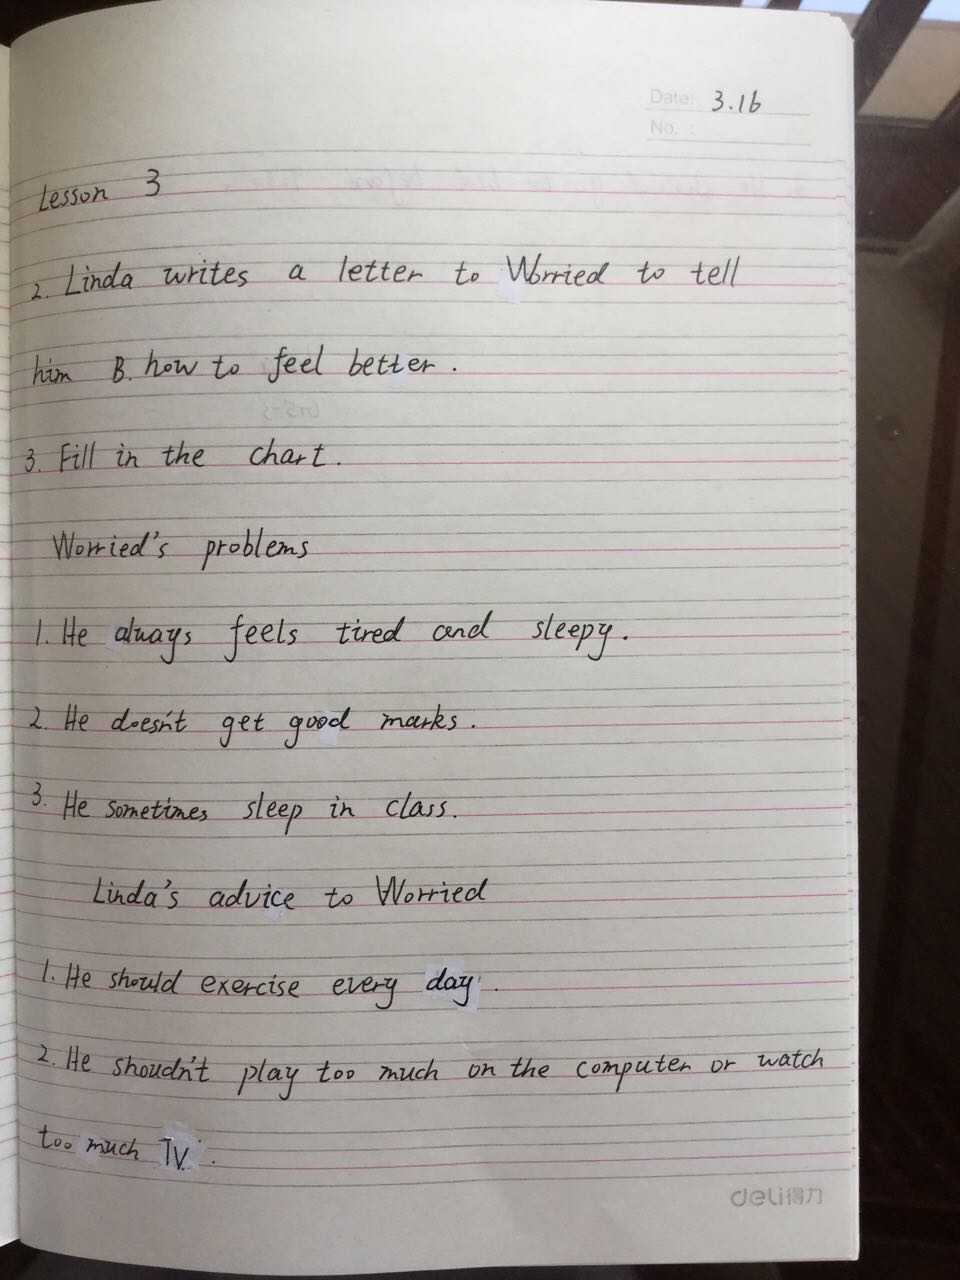 Date: 3.16
No. :
Lesson 3
2. Linda writes a letter to Worried to tell
him B. how to feel better.
3. Fill in the chart.
Worried's problems
1. He always feels tired and sleepy.
2. He doesn't get good marks.
3. He sometimes sleep in class.
Linda's advice to Worried
1. He should exercise every day.
2. He shoudn't play too much on the computer or watch
too much TV.
deli得力